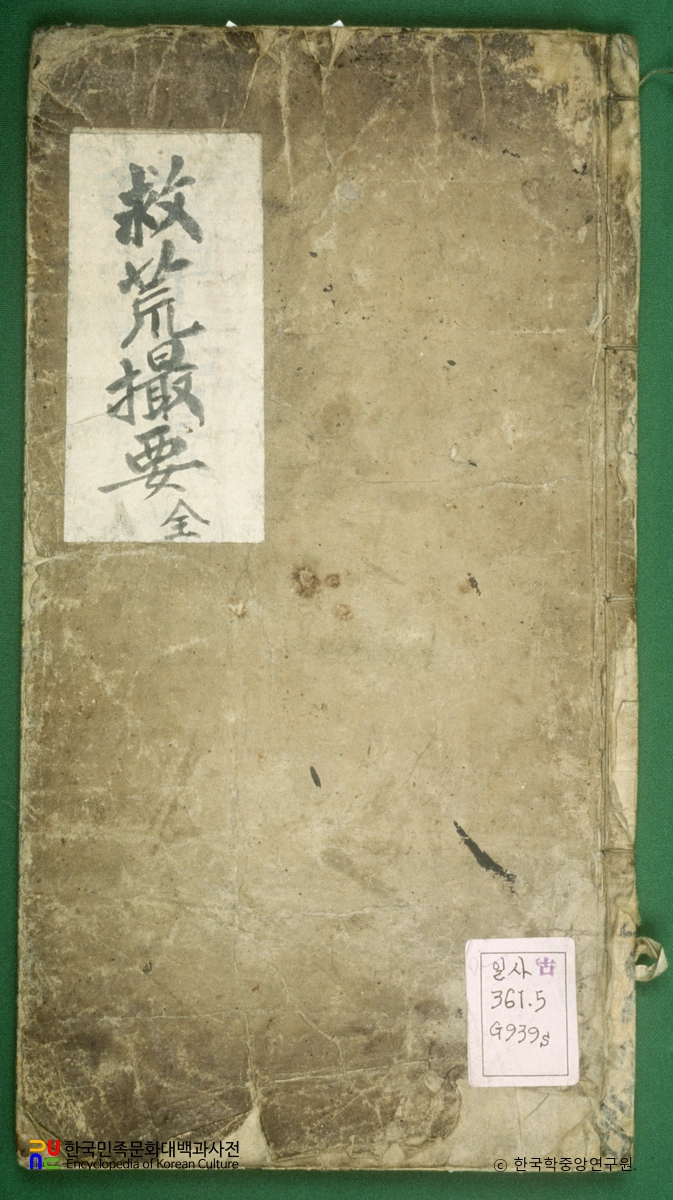 救荒撮要 全
일사 古
361.5
G939s
한국민족문화대백과사전
Encyclopedia of Korean Culture
© 한국학중앙연구원.